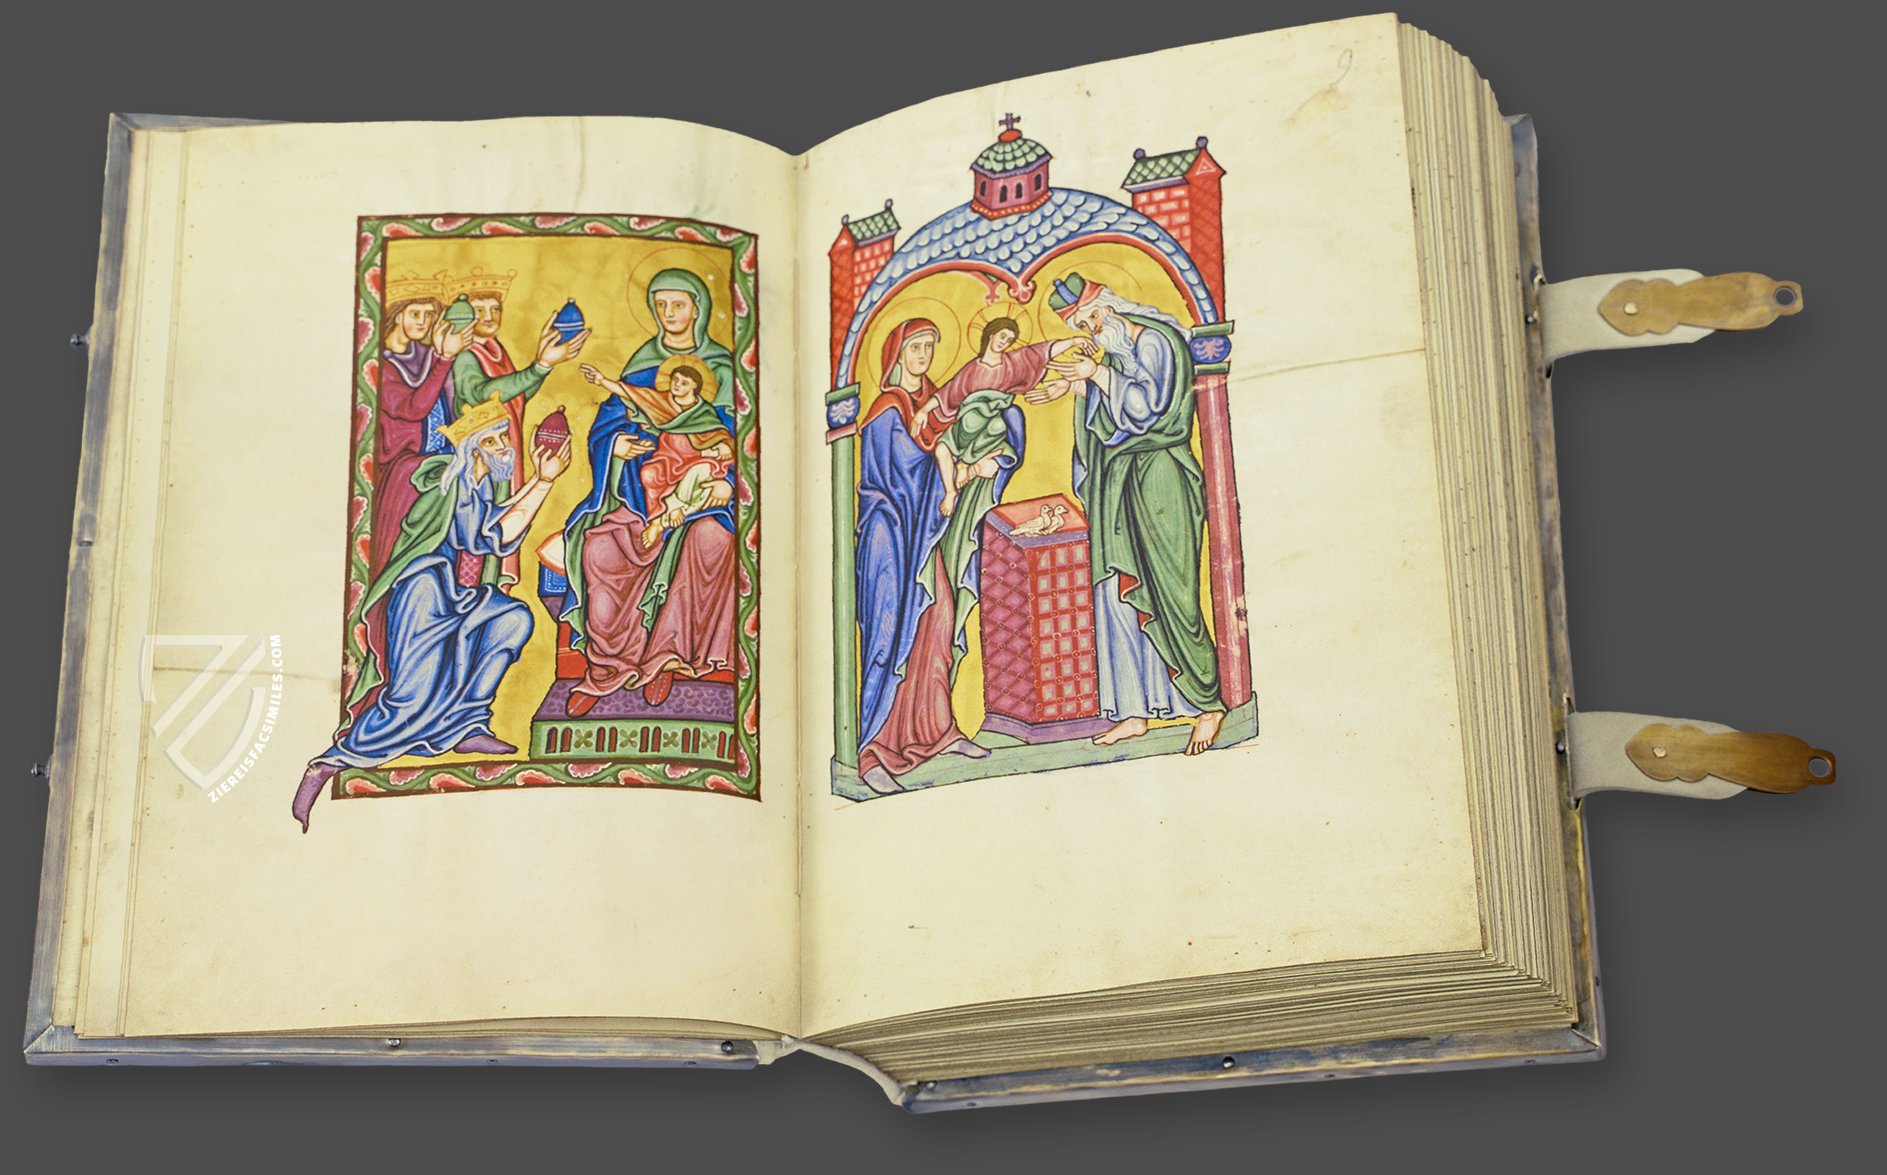 9
ZIEREISFACSIMILES.COM